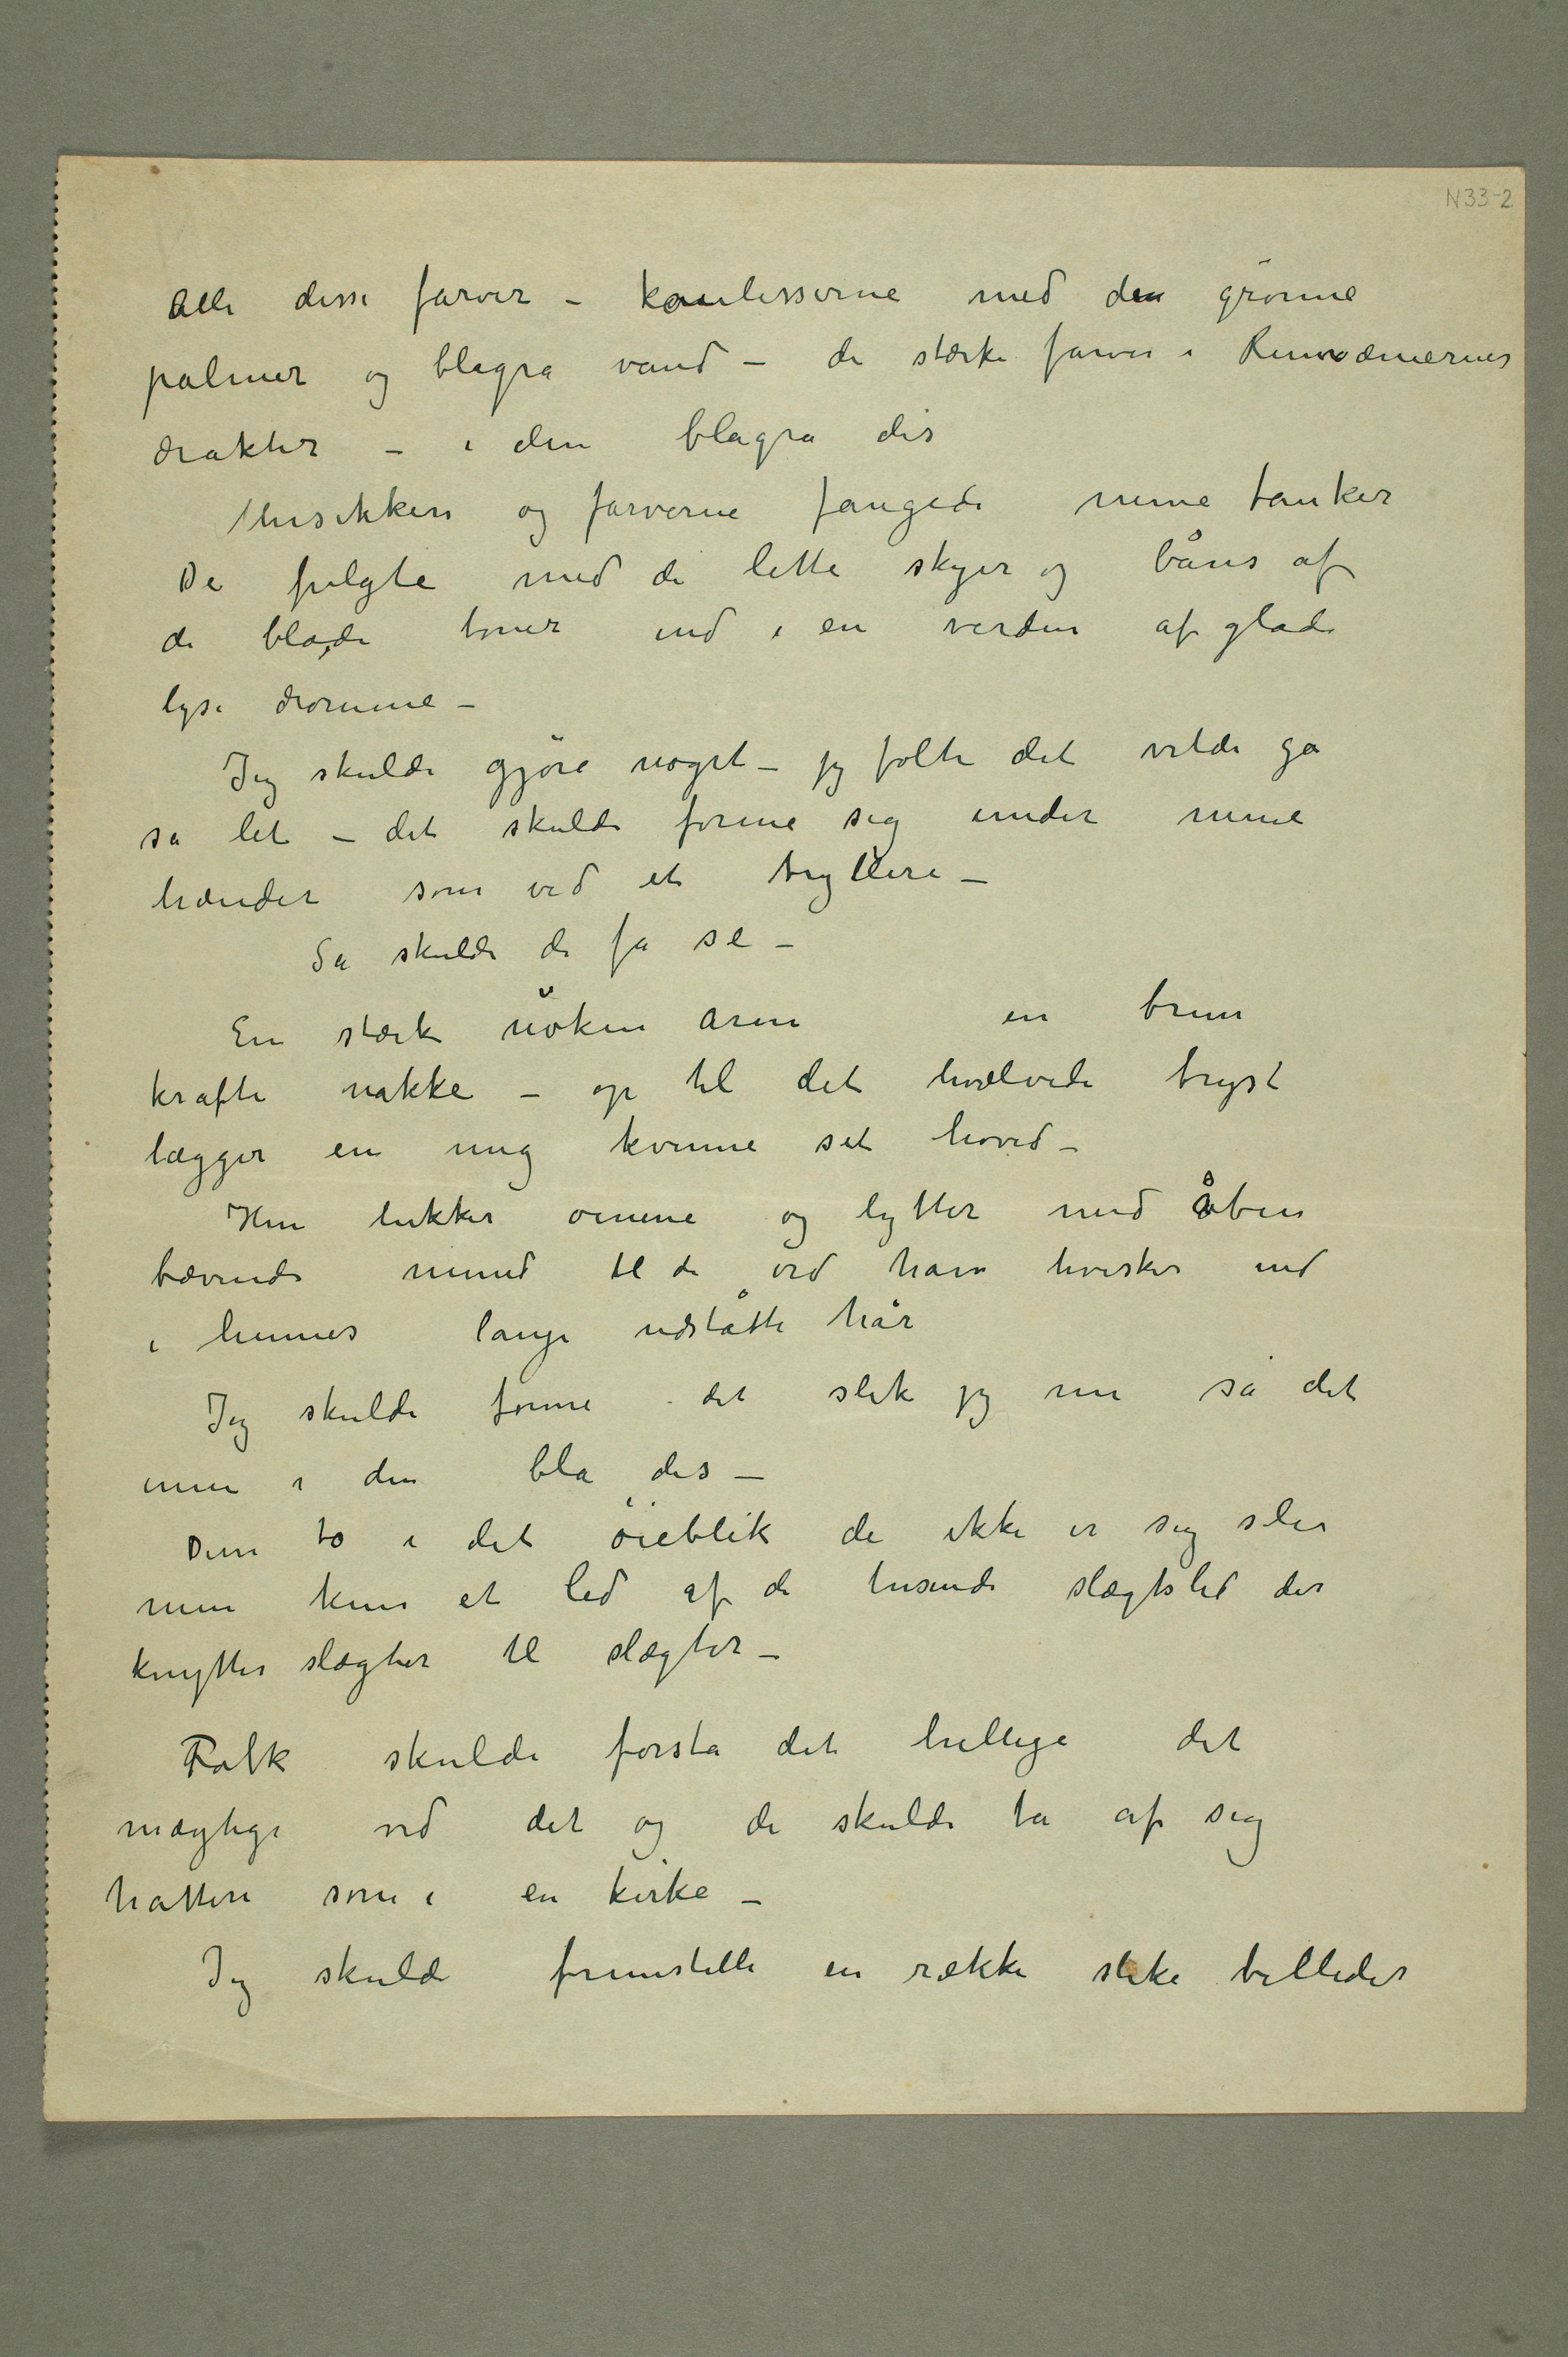 N33-2
Alle disse farver – koulisserne med den grönne
palmer og blagra vand – de stærke farver i Rumænernes
drakter – i den blagra dis
Musikken og farverne fangede mine tanker
De fulgte med de lette skyer og båres af
de blade toner ind i en verden af glade
lyse dromme –
Jeg skulde gjöre noget – jeg folte det vilde ga
sa let – det skulde forme sig under mine
hænder som ved et trylleri –
Sa skulde de fa se –
En stærk nöken arm en brun
krafti nakke – op til det hvælvede bryst
lægger en ung kvinne sit hoved –
Hun lukker oinene og lytter med åben
bævende mund til de ord han hvisker ind
i hennes lange udslåtte hår
Jeg skulde forme det slik jeg nu sa det
men i den bla dis –
Disse to i det öieblik de ikke er sig selv
men kun et led af de tusende slægtsled der
knytter slægter til slægter –
Folk skulde forsta det hellige det
mægtige ved det og de skulde ta af sig
hatten som i en kirke –
Jeg skulde fremstille en række slike billeder